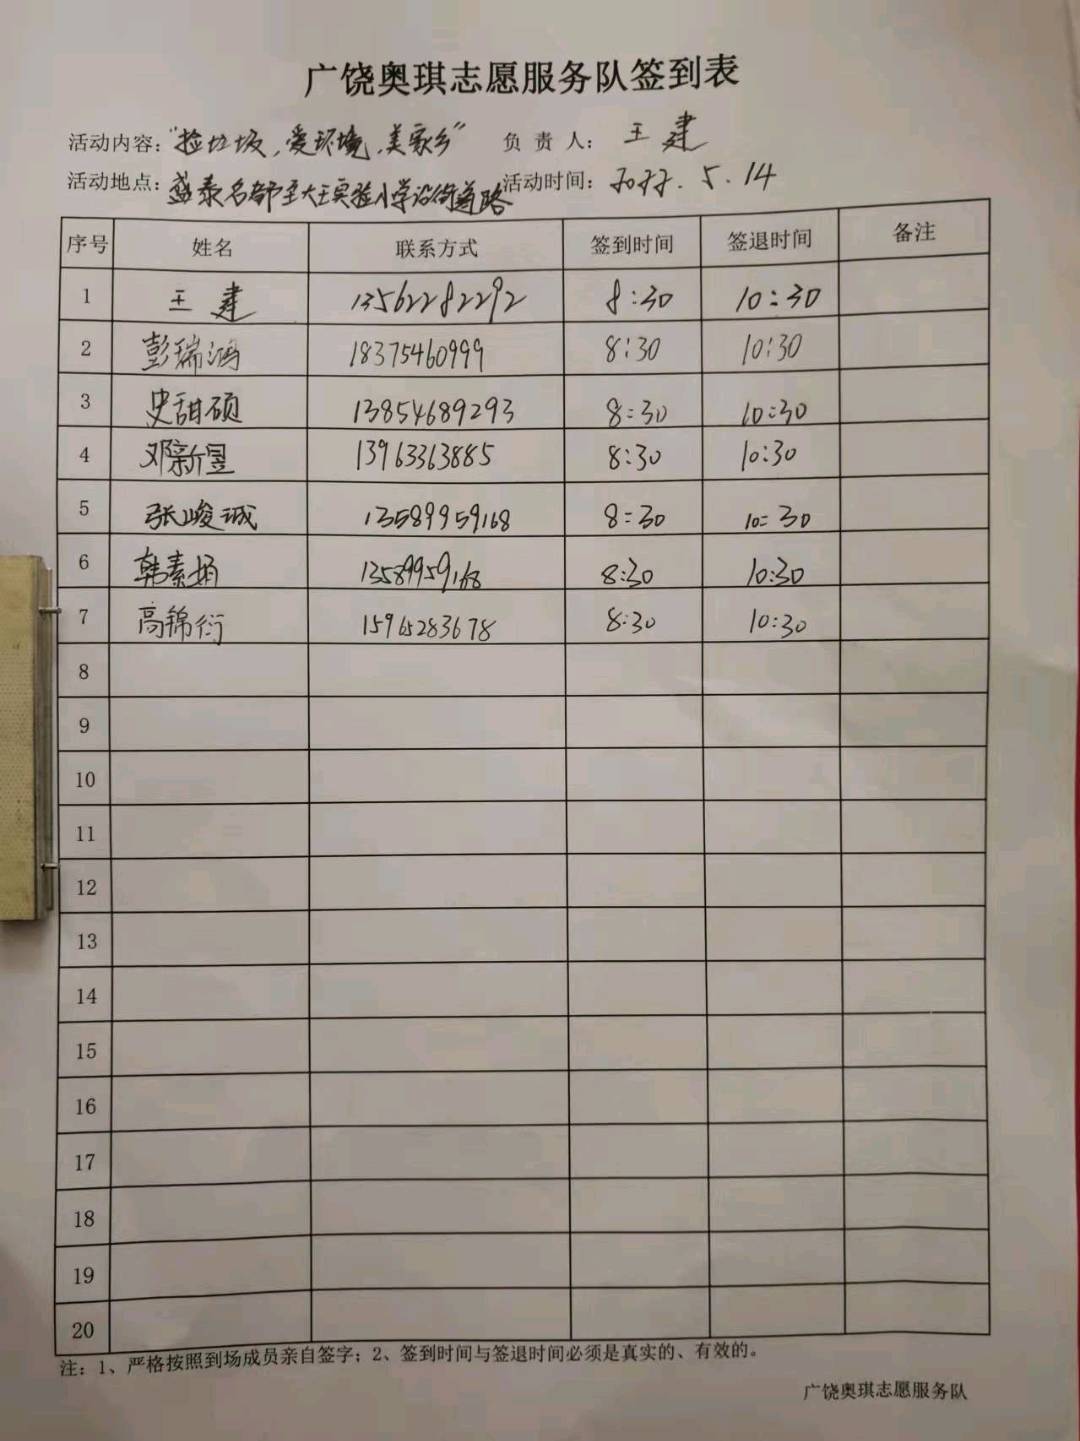 广饶奥琪志愿服务队签到表
活动内容：“捡垃圾，爱环境，美家乡” 负责人：王建
活动地点：盛泰名都至大王实验小学沿街道路 活动时间：2022.5.14
序号 姓名 联系方式 签到时间 签退时间 备注
1 王建 13562282292 8:30 10:30
2 彭瑞鸿 18375460999 8:30 10:30
3 史甜硕 13854689293 8:30 10:30
4 邓新昱 13963363885 8:30 10:30
5 张峻诚 13589959168 8:30 10:30
6 韩素娟 13589959168 8:30 10:30
7 高锦衍 15965283678 8:30 10:30
8
9
10
11
12
13
14
15
16
17
18
19
20
注：1、严格按照到场成员亲自签字；2、签到时间与签退时间必须是真实的、有效的。
广饶奥琪志愿服务队